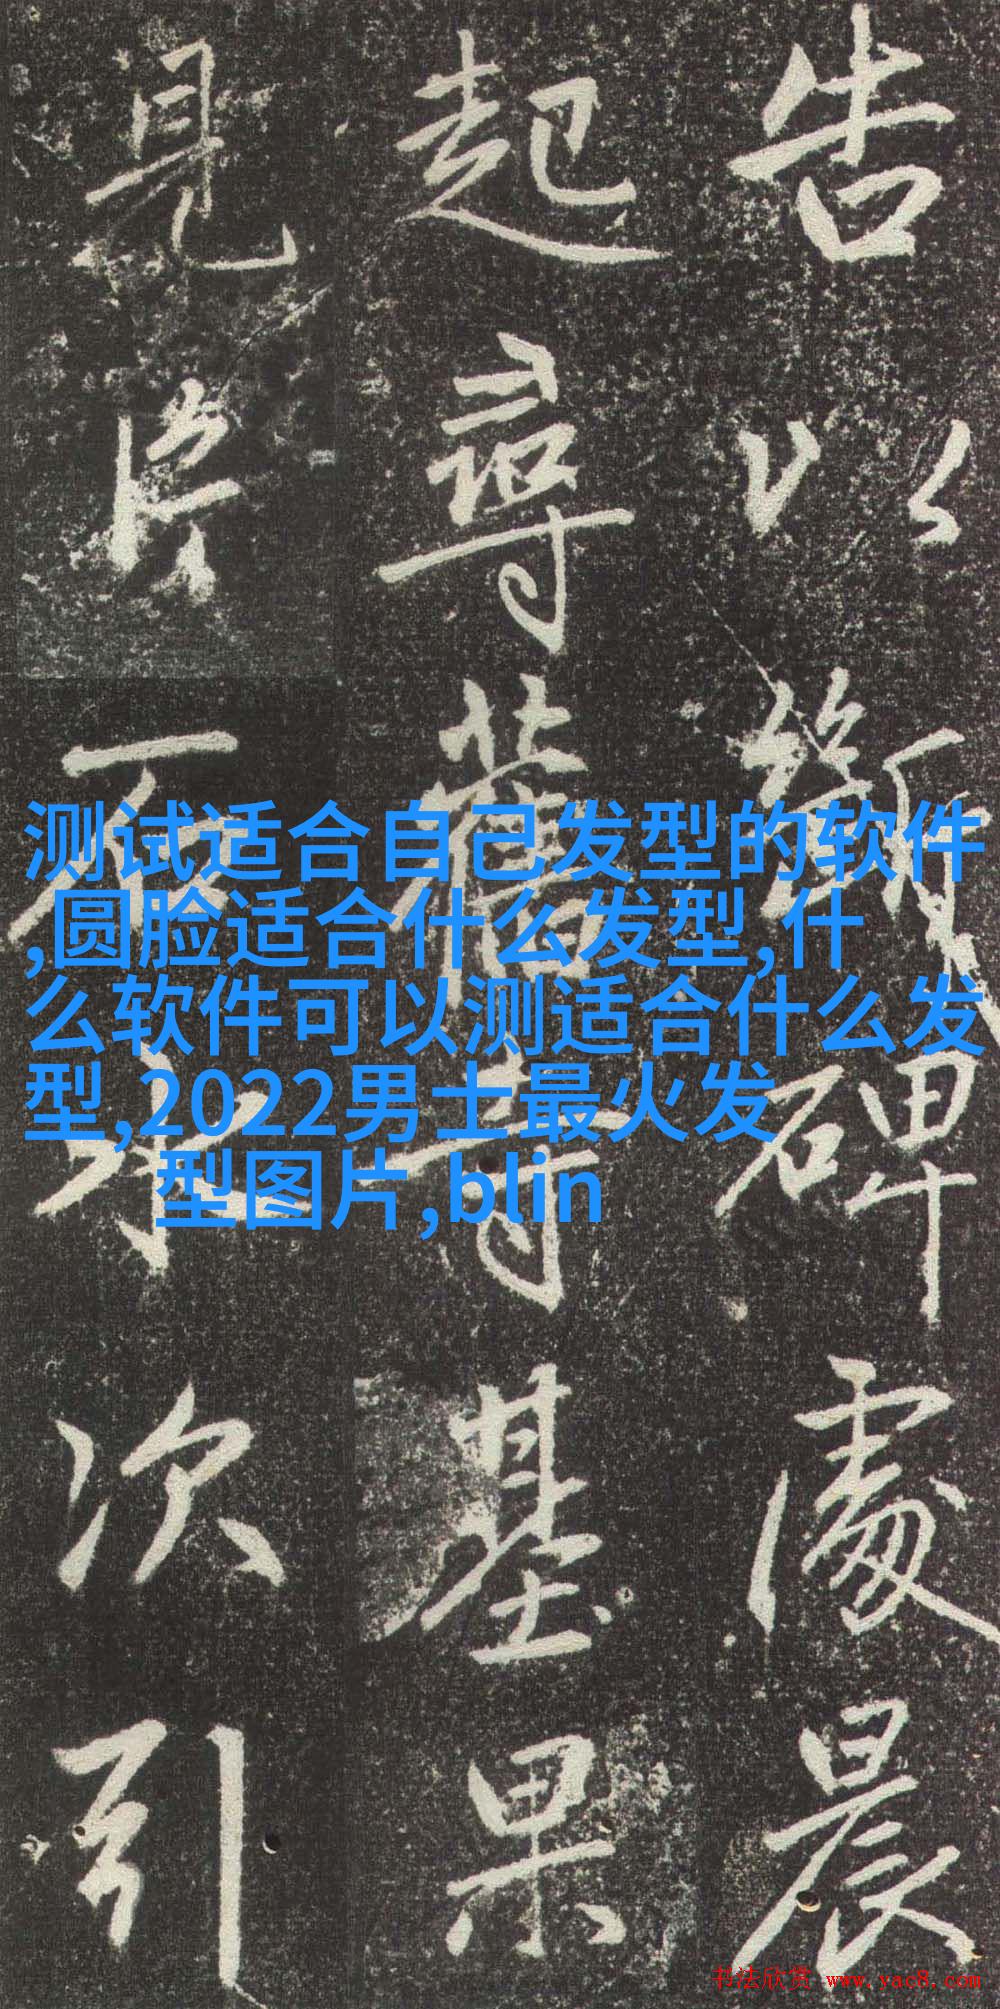 告以斷碑處晨
起尋舊寺基果
見次引
测试适合自己发型的软件
,圆脸适合什么发型,什
么软件可以测适合什么发
型,2022男士最火发
型图片,blin
书法欣赏 www.yac8.com